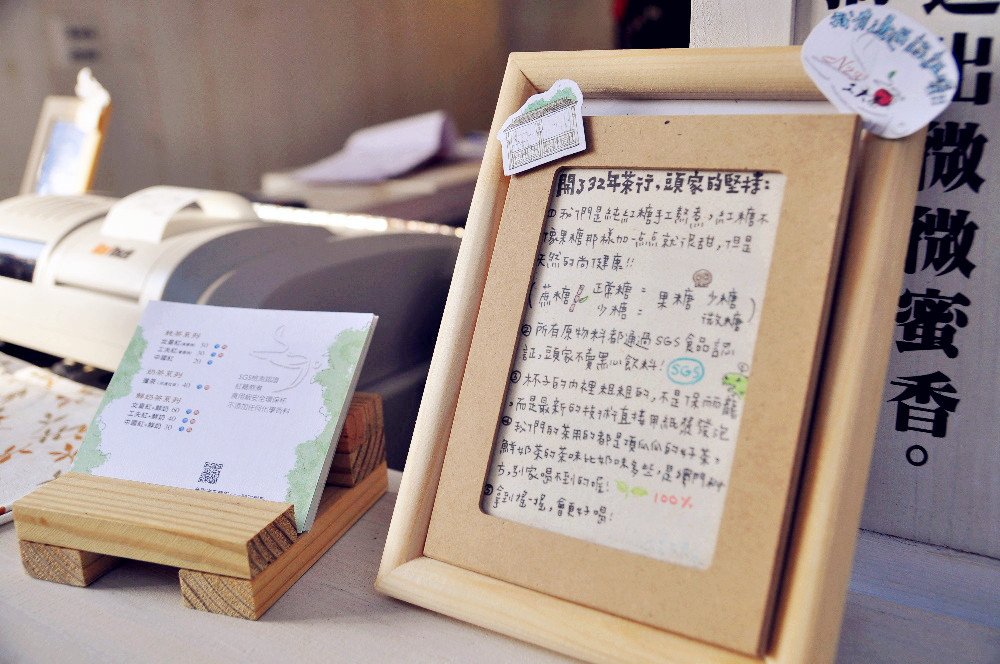 開了32年茶行，頭家的堅持：
①我們是純紅糖手工熬煮，紅糖不
像果糖那樣加一點點就很甜，但是
天然的尚健康!!
(蔗糖 正常糖 = 果糖 少糖
少糖 = 微糖)
②所有原物料都通過SGS食品認
証，頭家不賣黑心飲料!
SGS
③杯子的內裡粗粗的，不是保麗龍
，而是最新的技術直接用紙張發泡
④我們的茶用的都是頂瓜瓜的好茶，
鮮奶茶的茶味比奶味多些，是獨門秘
方，別家喝不到的喔! 100%
⑤拿到搖一搖，會更好喝!
純茶系列
文夏紅 30
工夫紅 30
中國紅 20
奶茶系列
40
鮮奶茶系列
文夏紅+鮮奶 60
工夫紅+鮮奶 40
中國紅+鮮奶 30
SGS檢測認證
紅糖熬煮
不添加任何化學香料
出
微
微
蜜
香
。